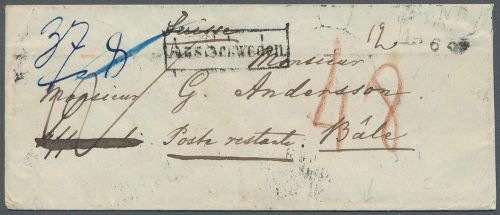 Suisse
37
8
Aus Schweden
12
Monsieur
48
Monsieur G. Andersson
Poste restante. Bâle.